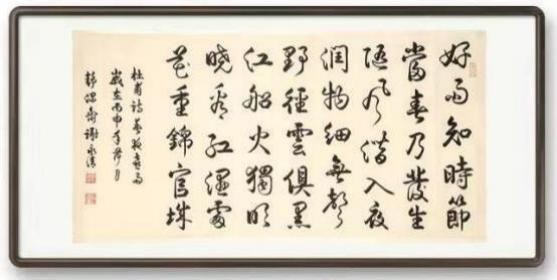 好雨知時節
當春乃發生
隨風潛入夜
潤物細無聲
野徑雲俱黑
江船火獨明
曉看紅濕處
花重錦官城
杜甫詩春夜喜雨
歲在丙申年